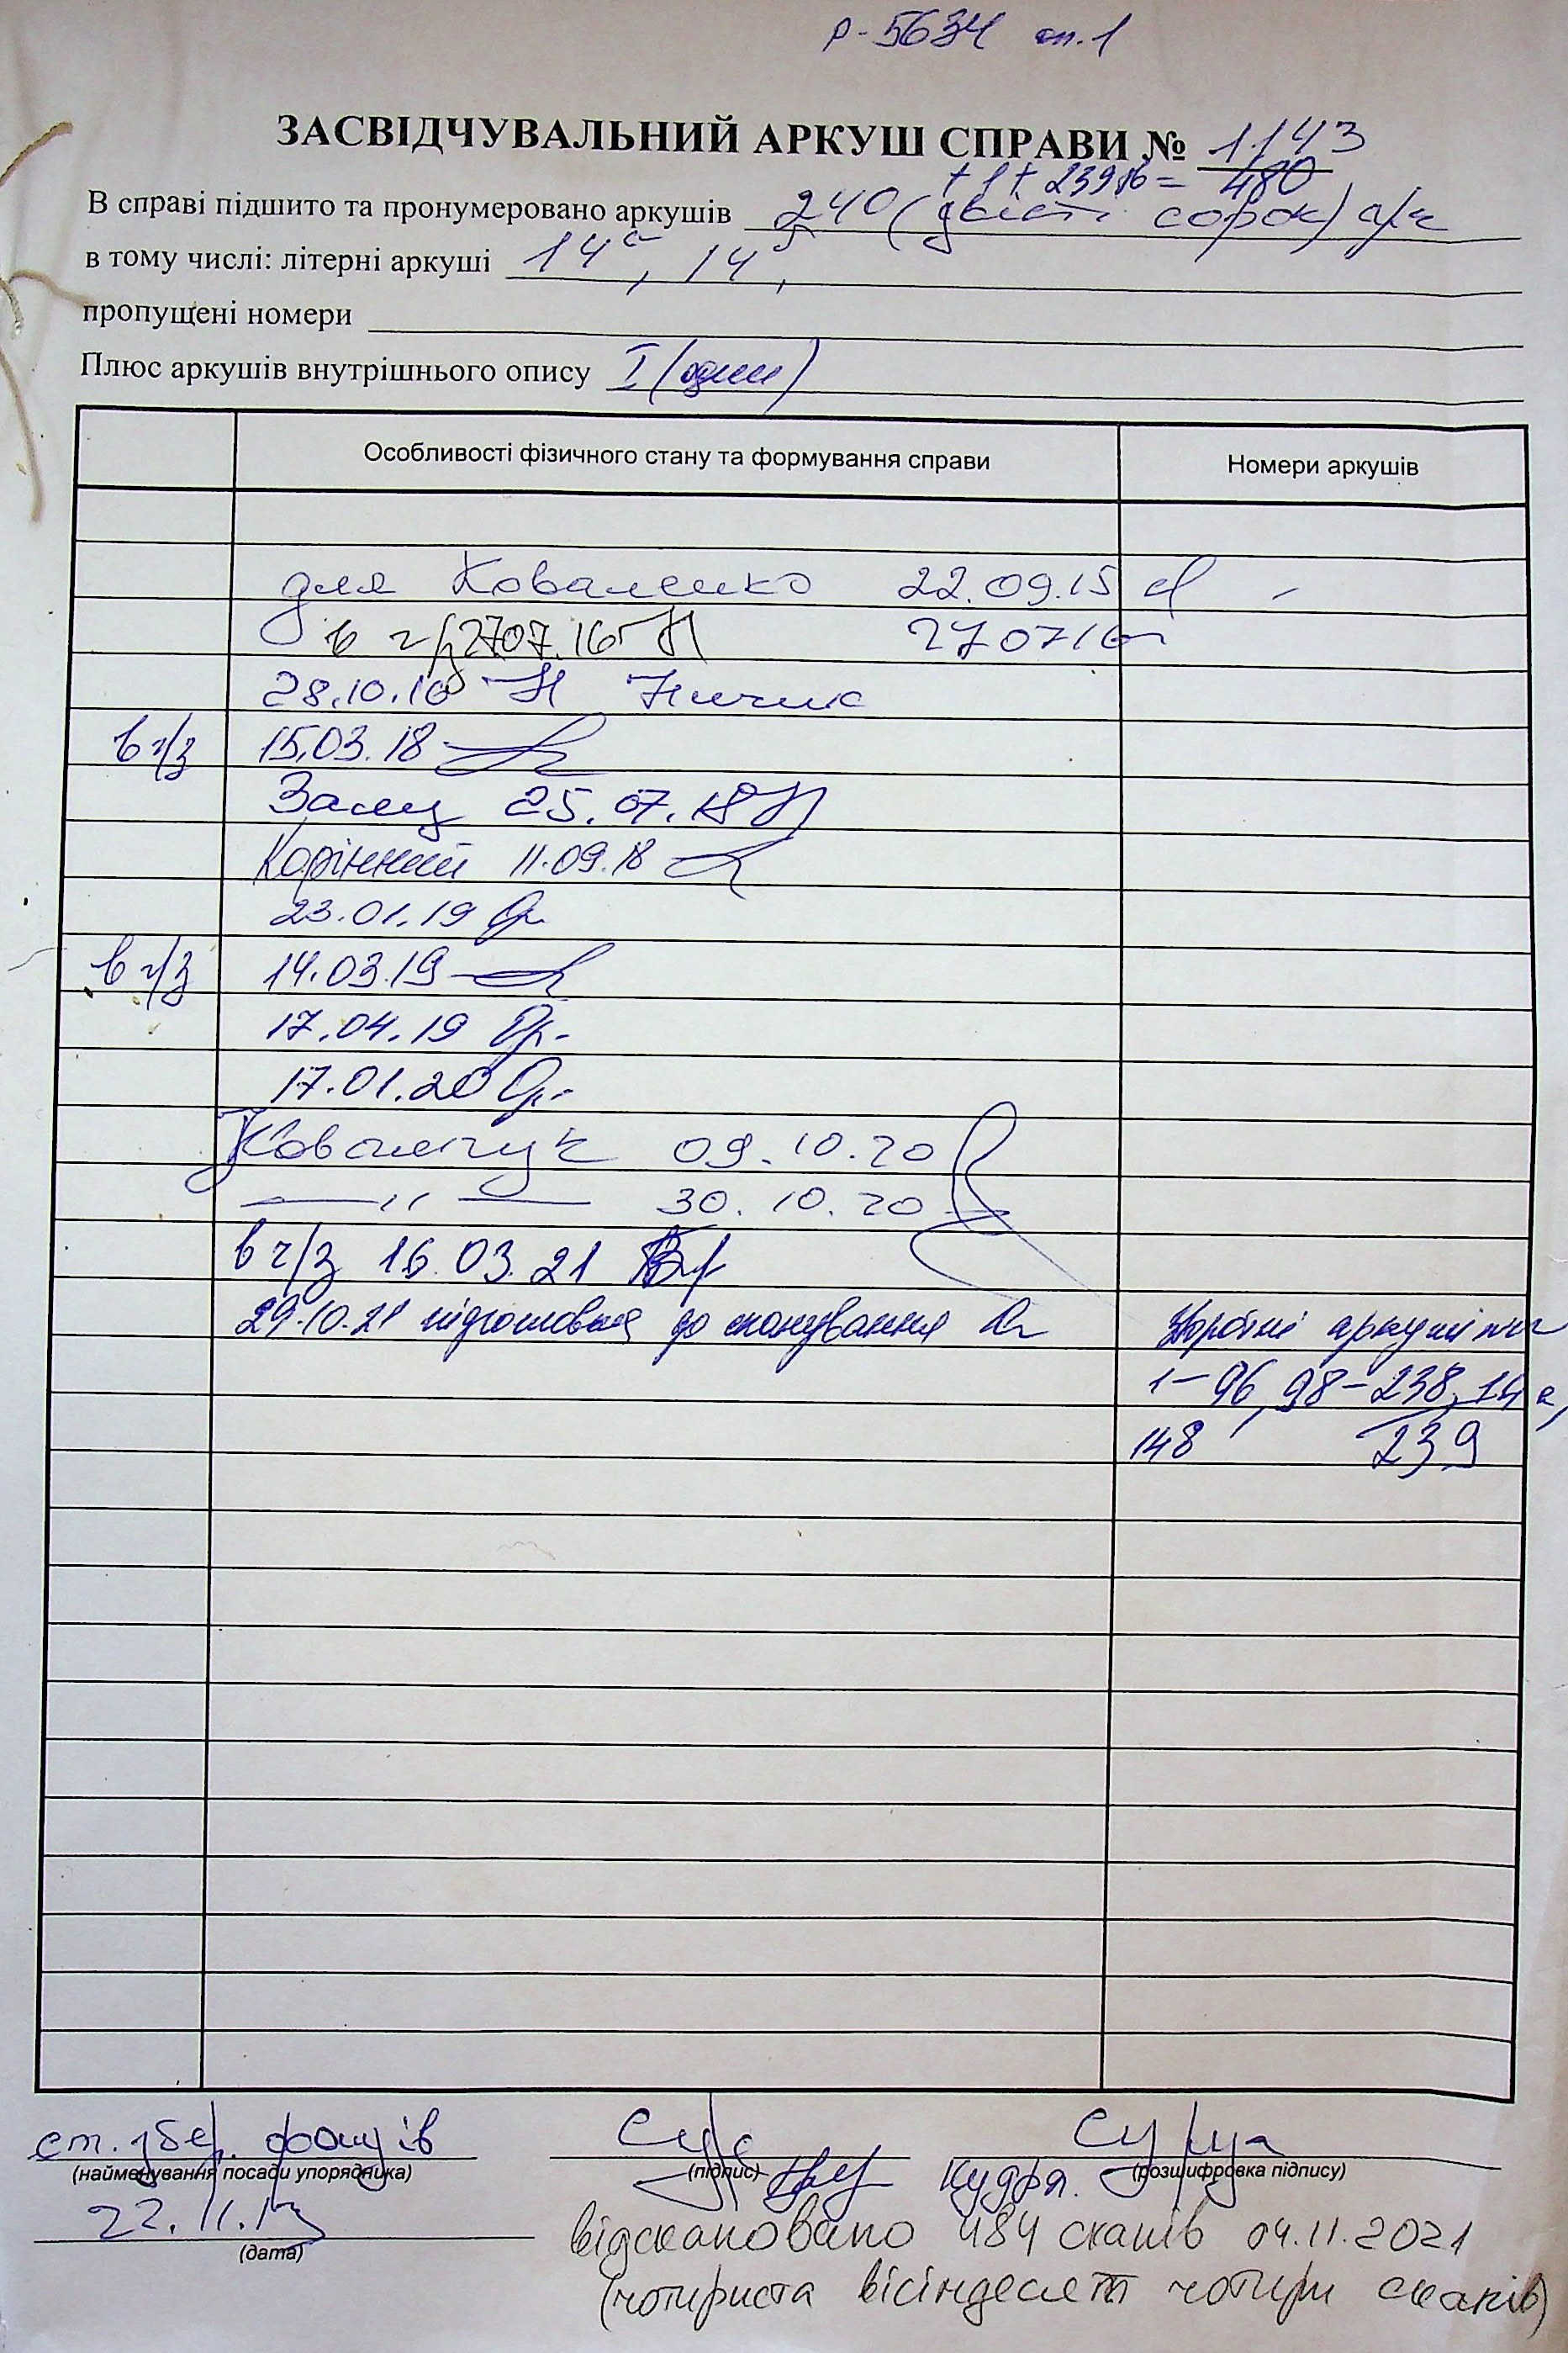 Р-5634 оп.1
ЗАСВІДЧУВАЛЬНИЙ АРКУШ СПРАВИ № 1143
+ 1 + 239зв = 480
В справі підшито та пронумеровано аркушів 240 (двісті сорок) а/к
в тому числі: літерні аркуші 14а, 14б,
пропущені номери
Плюс аркушів внутрішнього опису I (один)
Особливості фізичного стану та формування справи Номери аркушів
для Коваленко 22.09.15
в ч/з 27.07.16 27 07 16
28.10.16
в ч/з 15.03.18
25.07.18
Корінний 11.09.18
23.01.19
в ч/з 14.03.19
17.04.19
17.01.20
Ковальчук 09.10.20
— ,, — 30.10.20
в ч/з 16.03.21
29.10.21 підготовка до сканування Зворотні аркуші
1-96, 98-238, 14а,
14б 239
ст. збер. фондів Сур Сурца
(найменування посади упорядника) (підпис) (розшифровка підпису)
Кудря.
22.11.13
(дата)
відскановано 484 сканів 04.11.2021
(чотириста вісімдесят чотири сканів)